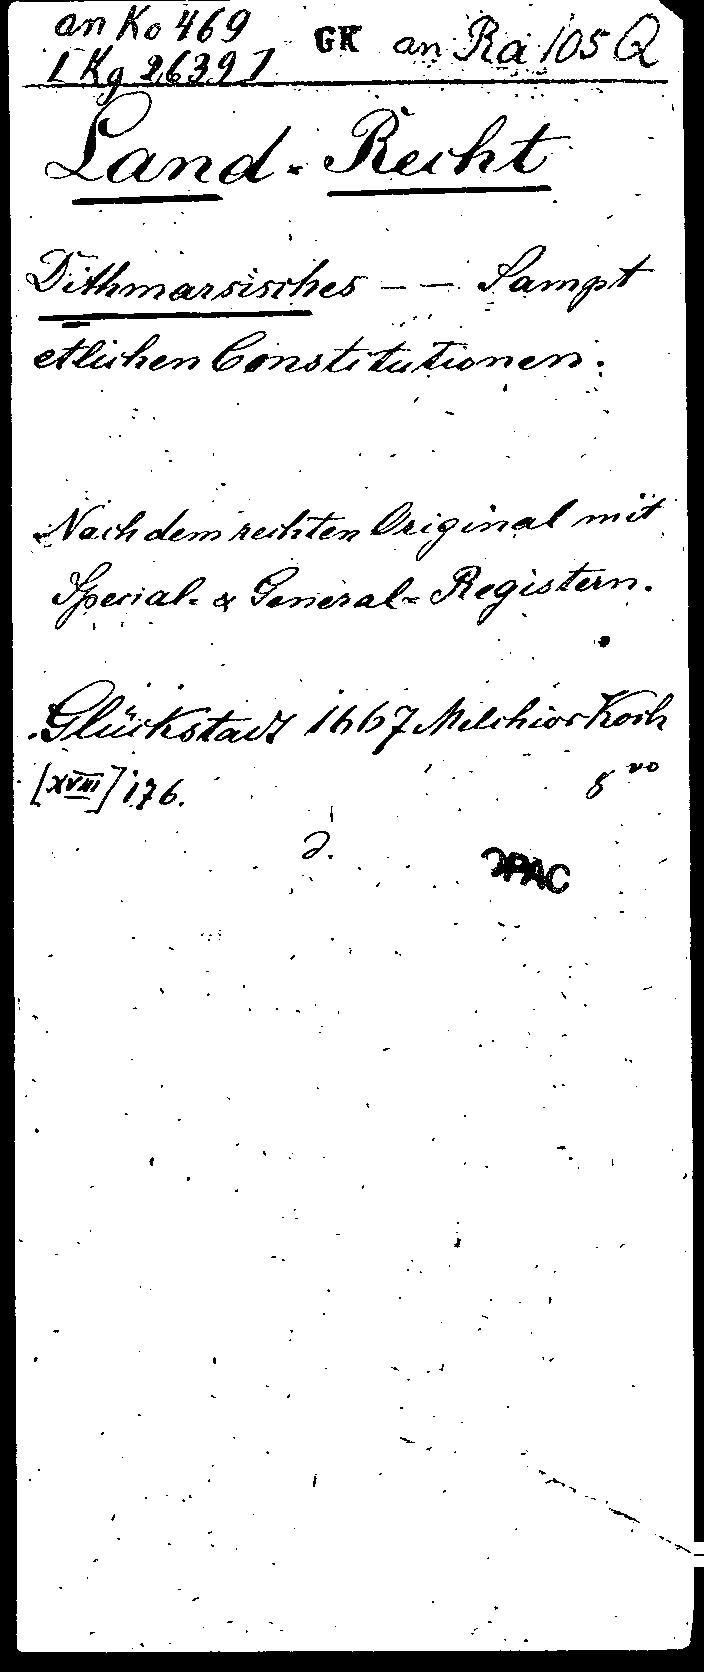 an Ko 469 GK an Ra 105 Q
1 Kg 26397
Land-Recht
Dithmarsisches – – Sampt
etlichen Constitutionen.
Nach dem rechten Original mit
Special- & General-Registern.
Glückstadt 1667 Melchior Koch
[XVIII] 176. 8vo
2.
OPAC